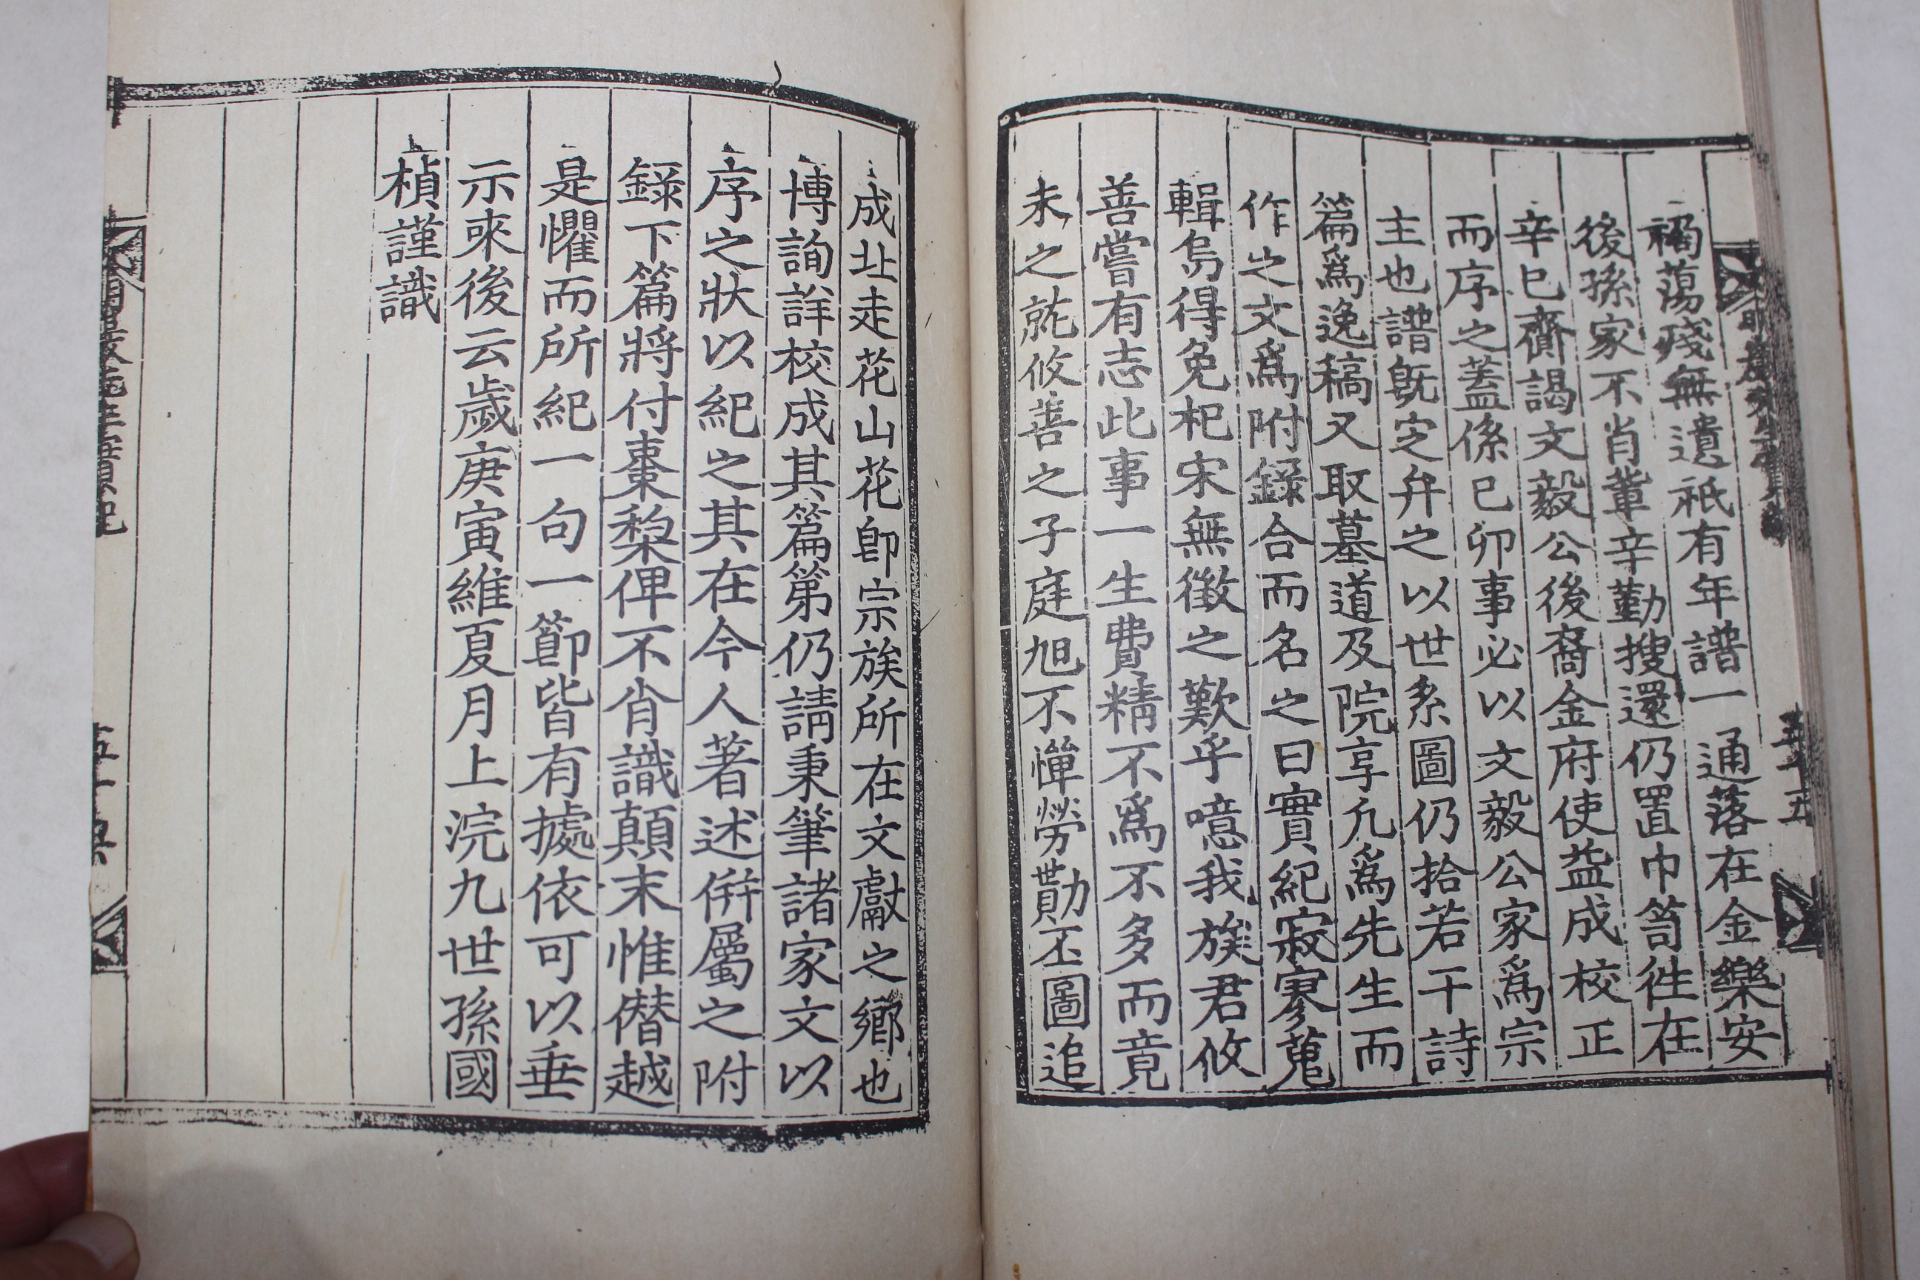 禍蕩殘無遺祇有年譜一通落在金樂安
後孫家不肖輩辛勤搜還仍置巾笥徃在
辛巳齋謁文毅公後裔金府使益成校正
而序之蓋係己卯事必以文毅公家爲宗
主也譜旣定弁之以世系圖仍拾若干詩
篇爲逸稿又取墓道及院享凡爲先生而
作之文爲附錄合而名之曰實紀寂寥蒐
輯烏得免杞宋無徵之歎乎噫我族君攸
善嘗有志此事一生費精不爲不多而竟
未之就攸善之子庭旭不憚勞勩丕圖追
成址走花山花卽宗族所在文獻之鄉也
博詢詳校成其篇第仍請秉筆諸家文以
序之狀以紀之其在今人著述倂屬之附
錄下篇將付棗棃俾不肖識顛末惟僭越
是懼而所紀一句一節皆有據依可以垂
示來後云歲庚寅維夏月上浣九世孫國
楨謹識